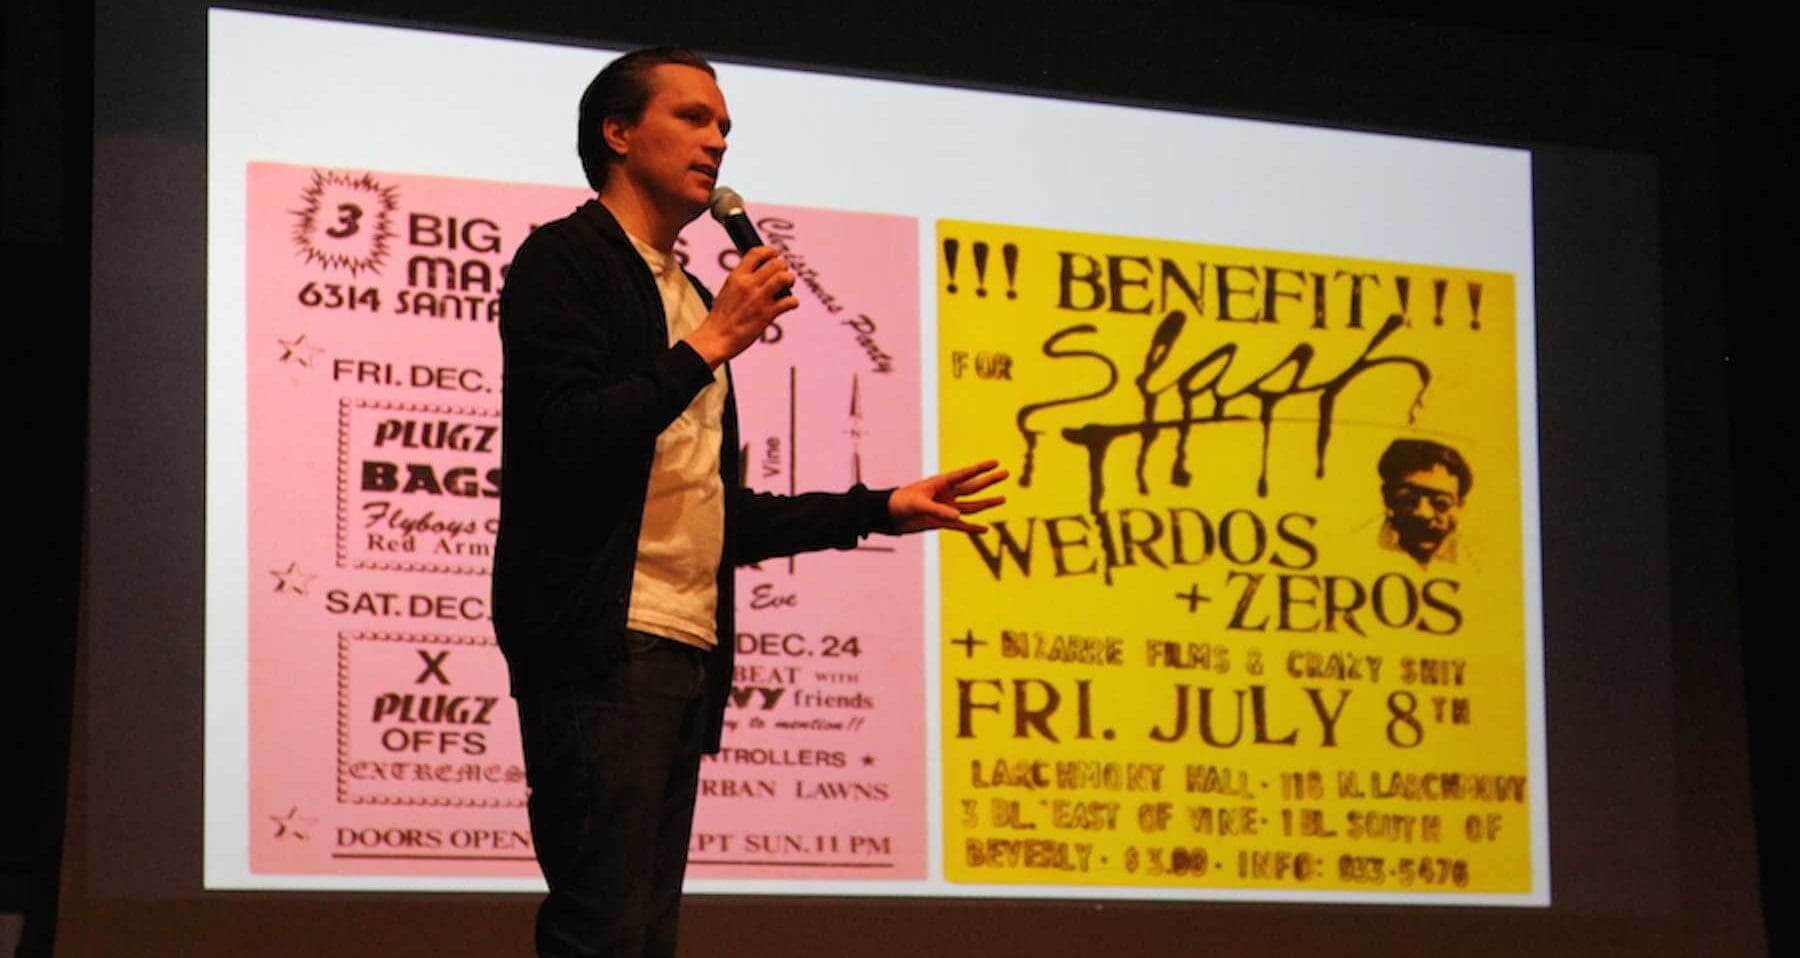 3 BIG
MAS
6314 SANTA
Christmas Party
FRI. DEC.
PLUGZ
BAGS
Flyboys
Red Arm
Vine
N
SAT. DEC.
Eve
X
PLUGZ
OFFS
EXTREMES
DEC. 24
BEAT WITH
VY friends
y to mention!!
NTROLLERS ★
RBAN LAWNS
DOORS OPEN
PT SUN. 11 PM
!!! BENEFIT!!!
FOR Slash
WEIRDOS
+ ZEROS
+ BIZARRE FILMS & CRAZY SHIT
FRI. JULY 8TH
LARCHMONT HALL · 118 N. LARCHMONT
3 BL. EAST OF VINE · 1 BL. SOUTH OF
BEVERLY · $3.00 · INFO: 933-5476